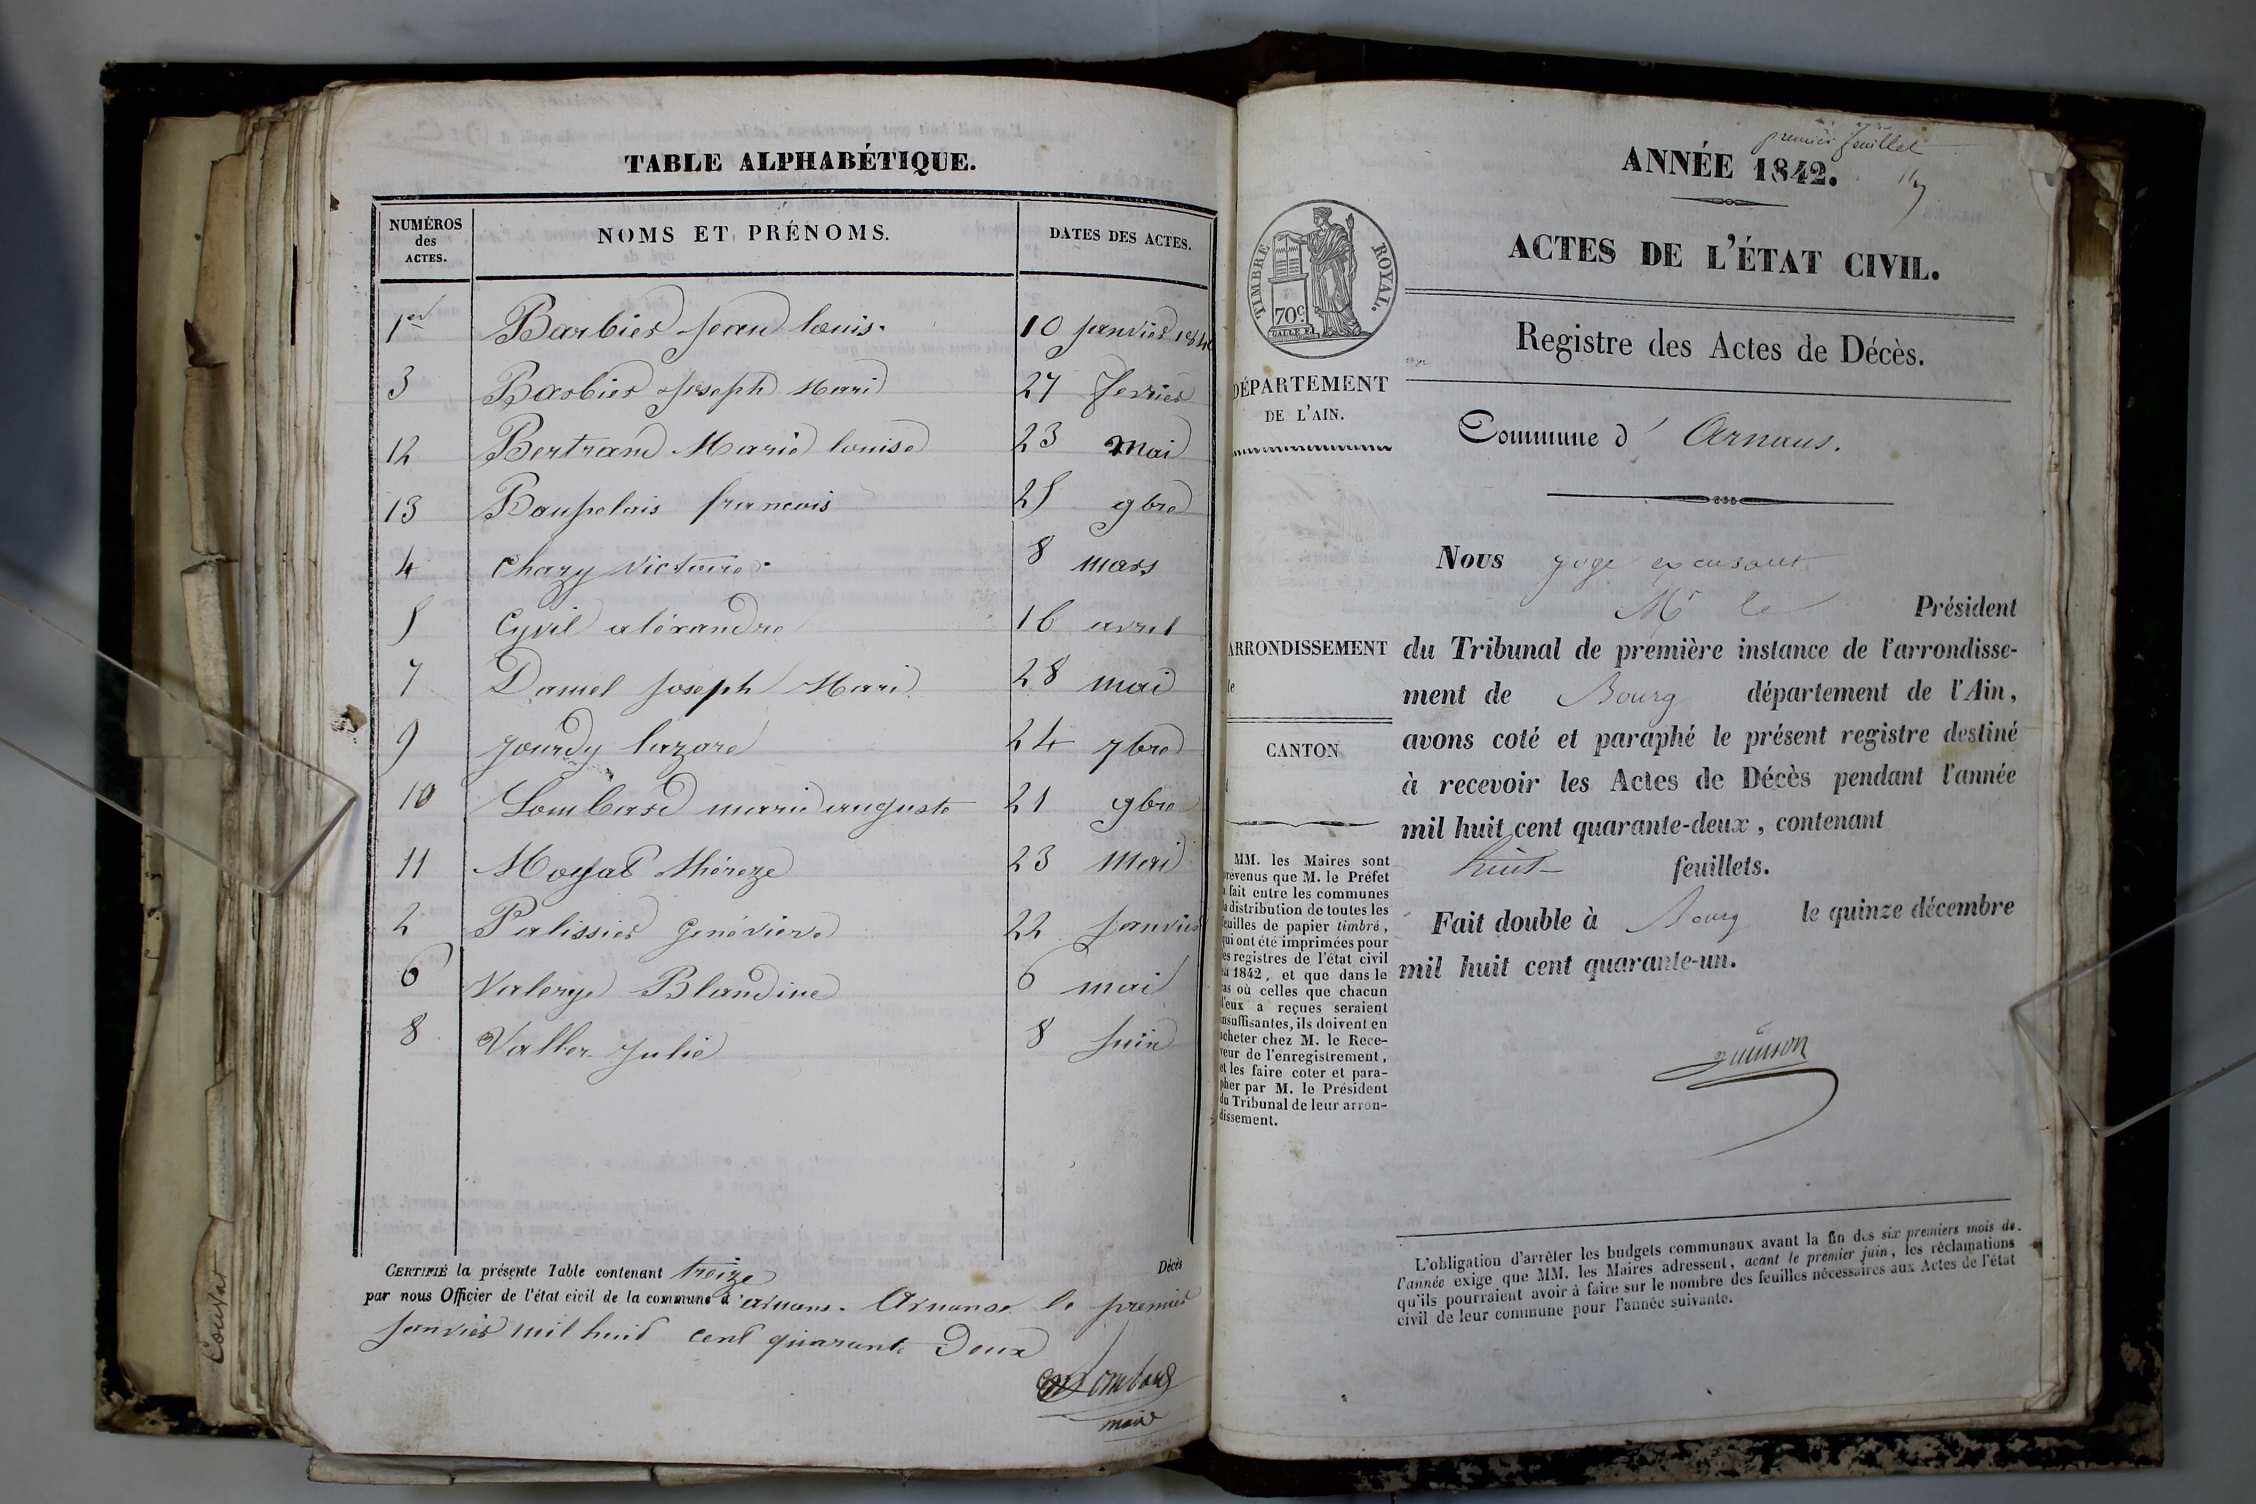 TABLE ALPHABÉTIQUE.
NUMÉROS des ACTES. NOMS ET PRÉNOMS. DATES DES ACTES.
1er Barbier Jean louis. 10 janvier 184
3 Barbier Joseph Mari 27 fevrier
12 Bertrand Marie louise 23 mai
13 francois 25 9bre
4 Chazy Victoire. 8 mars
5 Cyvil aléxandre 16 avril
7 Daniel Joseph Mari 28 mai
9 Jourdy lazare 24 7bre
10 Lombard marie auguste 21 9bre
11 thérèze 23 Mai
2 Palissier Geneviève 22 Janvier
6 Valerye Blandine 6 mai
8 Julie 8 Juin
CERTIFIÉ la présente Table contenant treize Décès
par nous Officier de l'état civil de la commune d'arnans. Arnans le premier
Janvier mil huit cent quarante Deux
Lombard
maire
Couvat
premier feuillet
ANNÉE 1842.
ACTES DE L'ÉTAT CIVIL.
TIMBRE ROYAL.
70c
Registre des Actes de Décès.
DÉPARTEMENT
DE L'AIN.
Commune d'Arnans.
Nous juge
Mr le Président
ARRONDISSEMENT
CANTON
du Tribunal de première instance de l'arrondisse-
ment de Bourg département de l'Ain,
avons coté et paraphé le présent registre destiné
à recevoir les Actes de Décès pendant l'année
mil huit cent quarante-deux, contenant
huit feuillets.
Fait double à Bourg le quinze décembre
mil huit cent quarante-un.
MM. les Maires sont
prévenus que M. le Préfet
a fait entre les communes
la distribution de toutes les
feuilles de papier timbré,
qui ont été imprimées pour
les registres de l'état civil
1842, et que dans le
cas où celles que chacun
d'eux a reçues seraient
insuffisantes, ils doivent en
acheter chez M. le Rece-
veur de l'enregistrement,
et les faire coter et para-
pher par M. le Président
du Tribunal de leur arron-
dissement.
L'obligation d'arrêter les budgets communaux avant la fin des six premiers mois de
l'année exige que MM. les Maires adressent, avant le premier juin, les réclamations
qu'ils pourraient avoir à faire sur le nombre des feuilles nécessaires aux Actes de l'état
civil de leur commune pour l'année suivante.